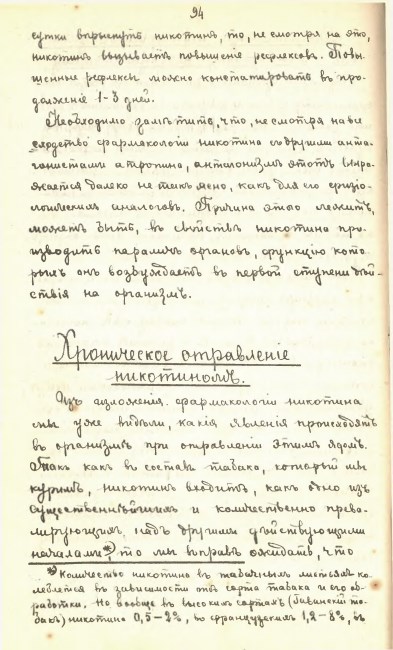 94
сутки впрыснуть никотинъ, то, не смотря на это,
никотинъ вызываетъ повышеніе рефлексовъ. Повы-
шенные рефлексы можно констатировать въ про-
долженіе 1-3 дней.
Необходимо замѣтить, что, не смотря на все
сродство фармакологіи никотина съ другими анта-
гонистами атропина, антагонизмъ этотъ выра-
жается далеко не такъ ясно, какъ для его физіо-
логическихъ аналоговъ. Причина этого лежитъ,
можетъ быть, въ свойствѣ никотина про-
изводить параличъ органовъ, функцію кото-
рыхъ онъ возбуждаетъ въ первой ступени дѣй-
ствія на организмъ.
Хроническое отравленіе
никотиномъ.
Изъ изложенія фармакологіи никотина
мы уже видѣли, какія явленія происходятъ
въ организмѣ при отравленіи этимъ ядомъ.
Такъ какъ въ составъ табака, который мы
куримъ, никотинъ входитъ, какъ одно изъ
существеннѣйшихъ и количественно прева-
лирующихъ надъ другими дѣйствующими
началами*), то мы вправѣ ожидать, что
*) Количество никотина въ табачныхъ листьяхъ ко-
леблется въ зависимости отъ сорта табака и его об-
работки. Но вообще въ высшихъ сортахъ (Гаванскій та-
бакъ) никотина 0,5-2%, во французскихъ 1,2-8%, въ